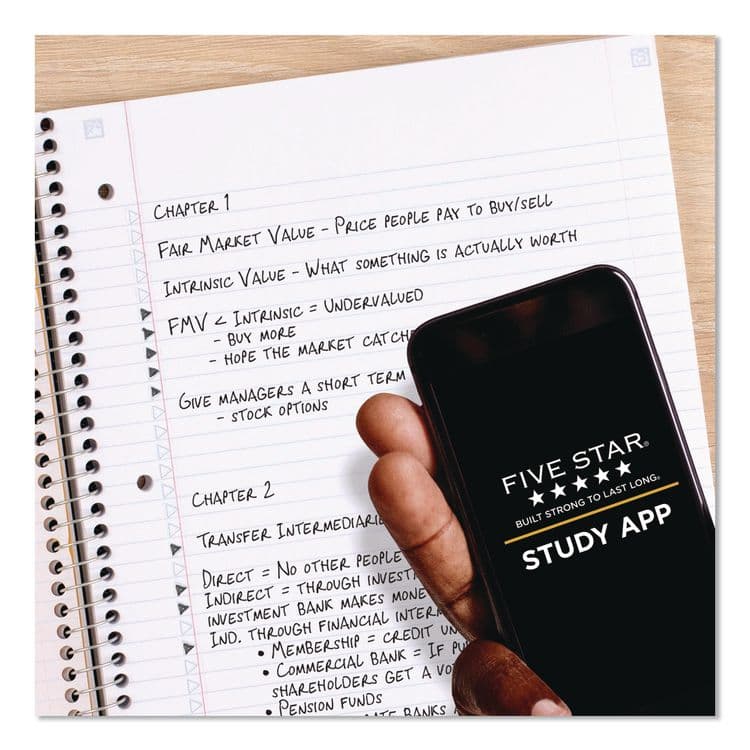 CHAPTER 1
FAIR MARKET VALUE - PRICE PEOPLE PAY TO BUY/SELL
INTRINSIC VALUE - WHAT SOMETHING IS ACTUALLY WORTH
FMV < INTRINSIC = UNDERVALUED
- BUY MORE
- HOPE THE MARKET CATCHE
GIVE MANAGERS A SHORT TERM
- STOCK OPTIONS
CHAPTER 2
TRANSFER INTERMEDIARIE
DIRECT = NO OTHER PEOPLE
INDIRECT = THROUGH INVEST
INVESTMENT BANK MAKES MONE
IND. THROUGH FINANCIAL INTER
• MEMBERSHIP = CREDIT UN
• COMMERCIAL BANK = IF PU
SHAREHOLDERS GET A VO
• PENSION FUNDS
BANKS
FIVE STAR®
★★★★★
BUILT STRONG TO LAST LONG.
STUDY APP